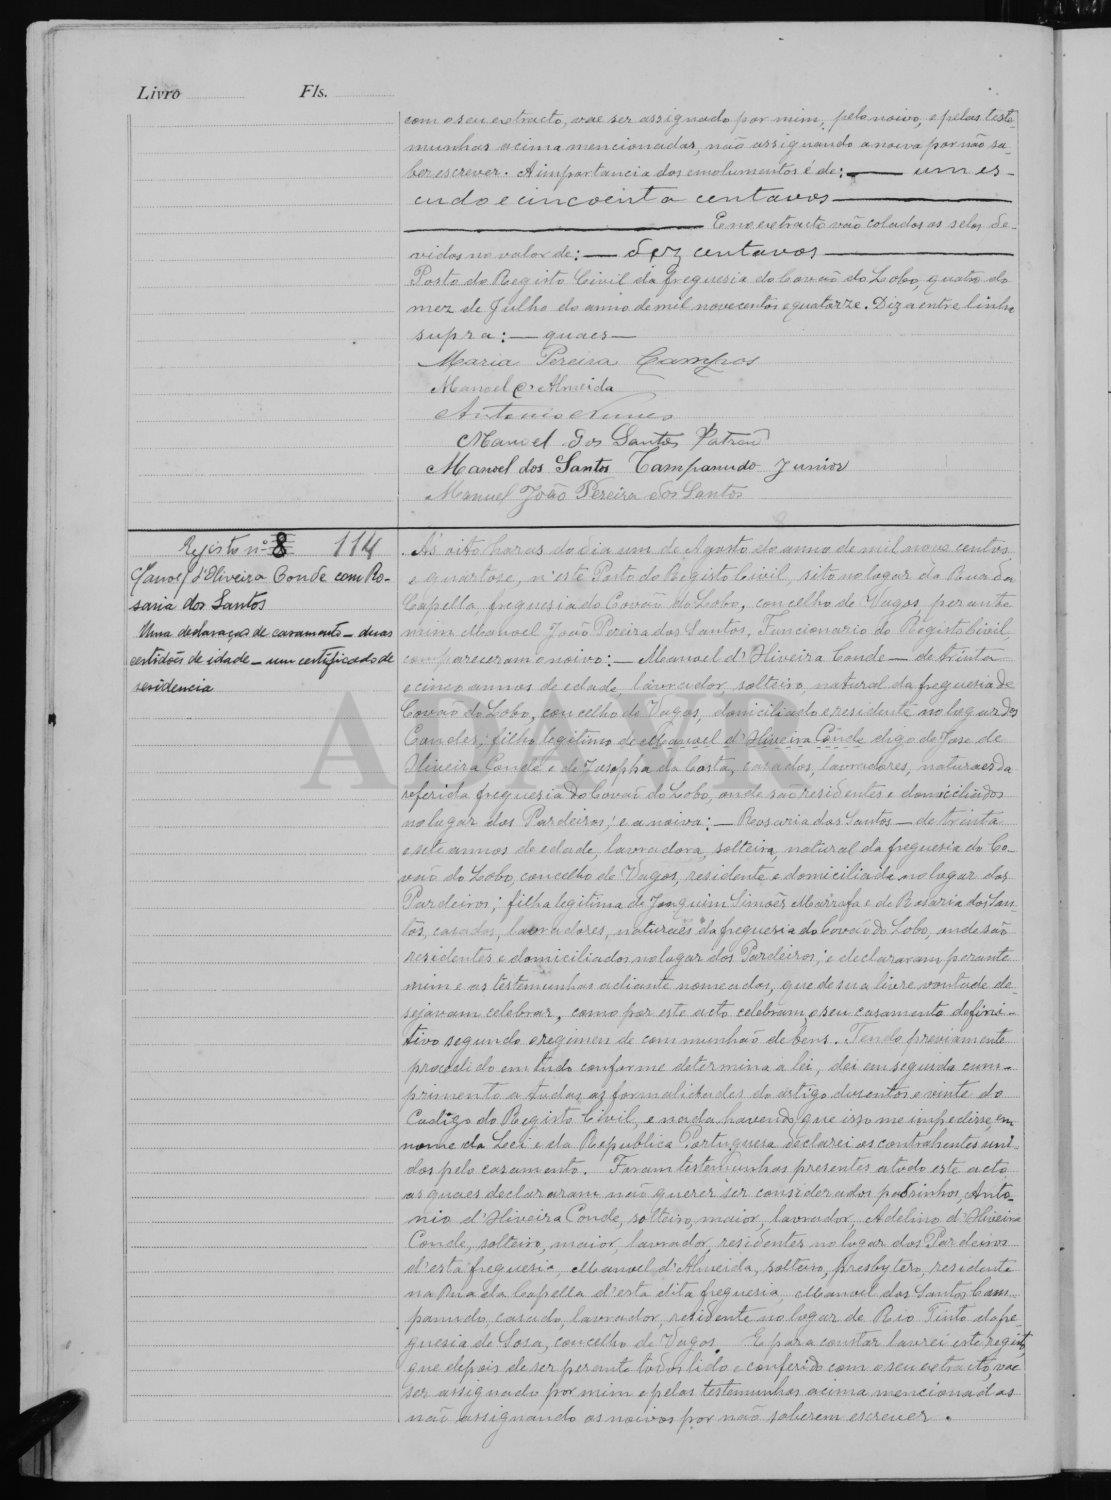 Livro Fls.
com o seu extracto, vae ser assignado por mim, pelo noivo, e pelas teste-
munhas acima mencionadas, não assignando a noiva por não sa-
ber escrever. A importancia dos emolumentos é de: — um es-
cudo e cincoenta centavos —
— E no extracto vão colados os selos de-
vidos no valor de: — dez centavos —
Posto do Registo Civil da freguesia do Covão do Lobo, quatro do
mez de Julho do anno de mil novecentos e quatorze. Diz a entre linha
supra: — quaes —
Maria Pereira Campos
Manoel d'Almeida
Antonio Nunes
Manoel dos Santos Patrão
Manoel dos Santos Campanudo Junior
Manuel João Pereira dos Santos
Registo nº 8 114
Manoel d'Oliveira Conde com Ro-
saria dos Santos
Uma declaração de casamento — duas
certidões de idade — um certificado de
residencia
As oito horas do dia um de Agosto do anno de mil nove centos
e quartose, n'este Posto do Registo Civil, sito no logar da Rua da
Capella, freguesia do Covão do Lobo, concelho de Vagos, perante
mim Manoel João Pereira dos Santos, Funcionario do Registo Civil,
compareceram o noivo: — Manoel d'Oliveira Conde — de trinta
e cinco annos de edade, lavrador, solteiro, natural da freguesia de
Covão do Lobo, concelho de Vagos, domiciliado e residente no logar dos
Condes; filho legitimo de Manoel d'Oliveira Conde digo de Jose de
Oliveira Conde e de Josepha da Costa, casados, lavradores, naturaes da
referida freguesia do Covão do Lobo, onde são residentes e domiciliados
no lugar dos Pardeiros; e a noiva: — Rosaria dos Santos — de trinta
e sete annos de edade, lavradora, solteira, natural da freguesia do Co-
vão do Lobo, concelho de Vagos, residente e domiciliada no logar dos
Pardeiros; filha legitima de Joaquim Simões Marrafa e de Rosaria dos San-
tos, casados, lavradores, naturaes da freguesia do Covão do Lobo, onde são
residentes e domiciliados no logar dos Pardeiros; e declararam perante
mim e as testemunhas adiante nomeadas, que de sua livre vontade de-
sejavam celebrar, como por este acto celebram, o seu casamento defini-
tivo segundo o regimen de communhão de bens. Tendo previamente
procedido em tudo conforme determina a lei, dei em seguida cum-
primento a todas as formalidades do artigo dusentos e vinte do
Codigo do Registo Civil, e nada havendo que isso me impedisse, em
nome da Lei e da Republica Portuguesa declarei os contrahentes uni-
dos pelo casamento. Foram testemunhas presentes a todo este acto
as quaes declararam não querer ser considerados padrinhos, Anto-
nio d'Oliveira Conde, solteiro, maior, lavrador, Adelino d'Oliveira
Conde, solteiro, maior, lavrador, residentes no logar dos Pardeiros
d'esta freguesia, Manoel d'Almeida, solteiro, presbytero, residente
na Rua da Capella d'esta dita freguesia, Manoel dos Santos Cam-
panudo, casado, lavrador, residente no logar de Rio Tinto da fre-
guesia de Sosa, concelho de Vagos. E para constar lavrei este registo,
que depois de ser perante todos lido e conferido com o seu extracto, vae
ser assignado por mim e pelas testemunhas acima mencionadas
não assignando os noivos por não saberem escrever.